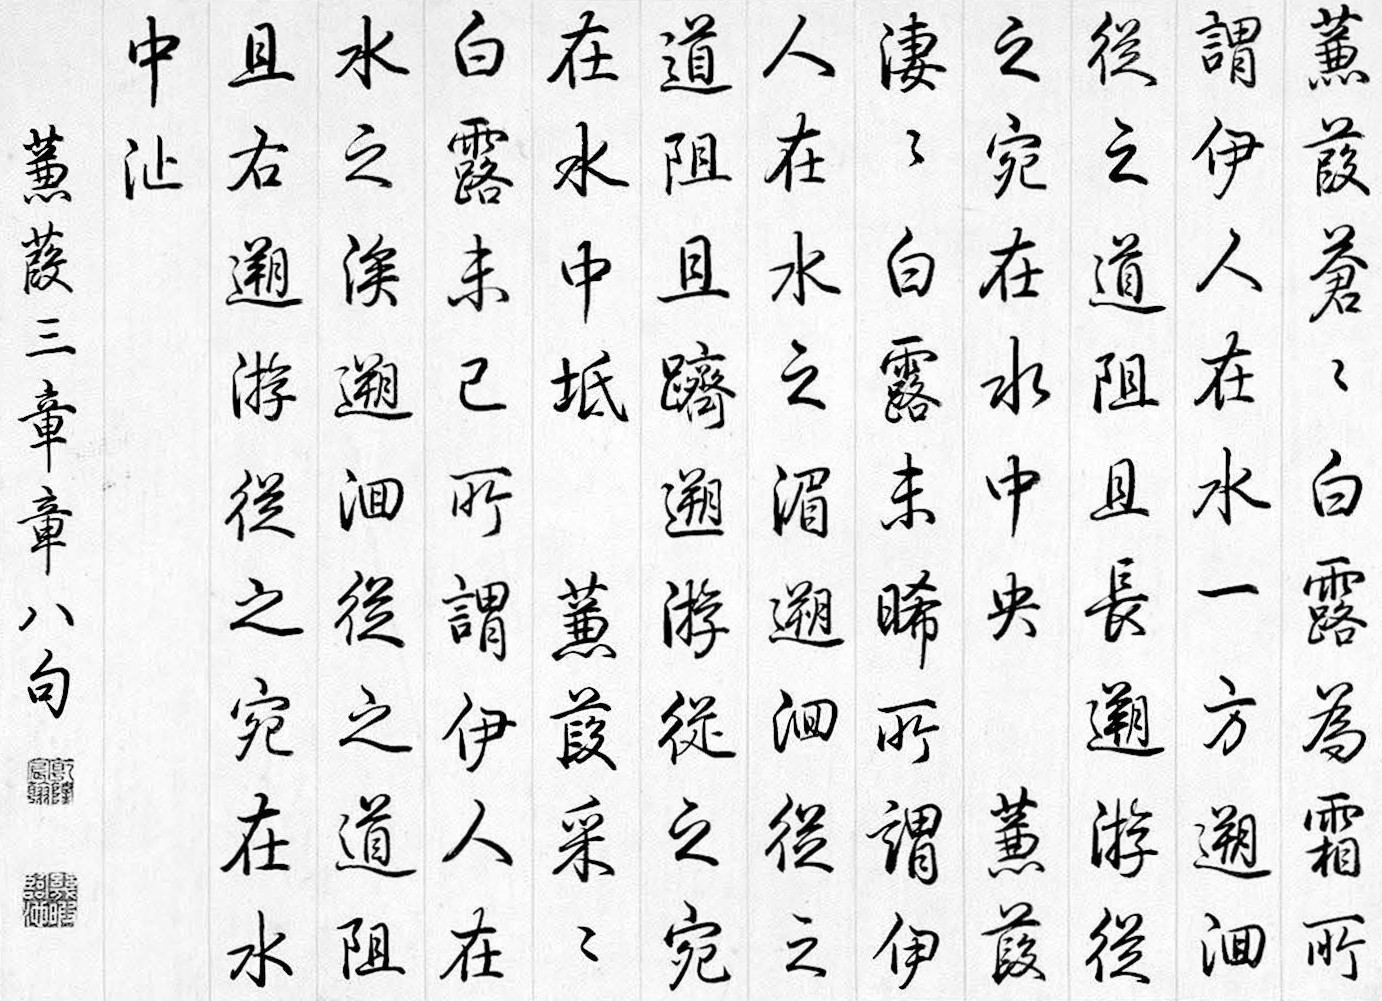 蒹葭蒼〻白露為霜所
謂伊人在水一方遡洄
從之道阻且長遡游從
之宛在水中央　蒹葭
淒〻白露未晞所謂伊
人在水之湄遡洄從之
道阻且躋遡游從之宛
在水中坻　蒹葭采〻
白露未已所謂伊人在
水之涘遡洄從之道阻
且右遡游從之宛在水
中沚
蒹葭三章章八句
乾隆宸翰